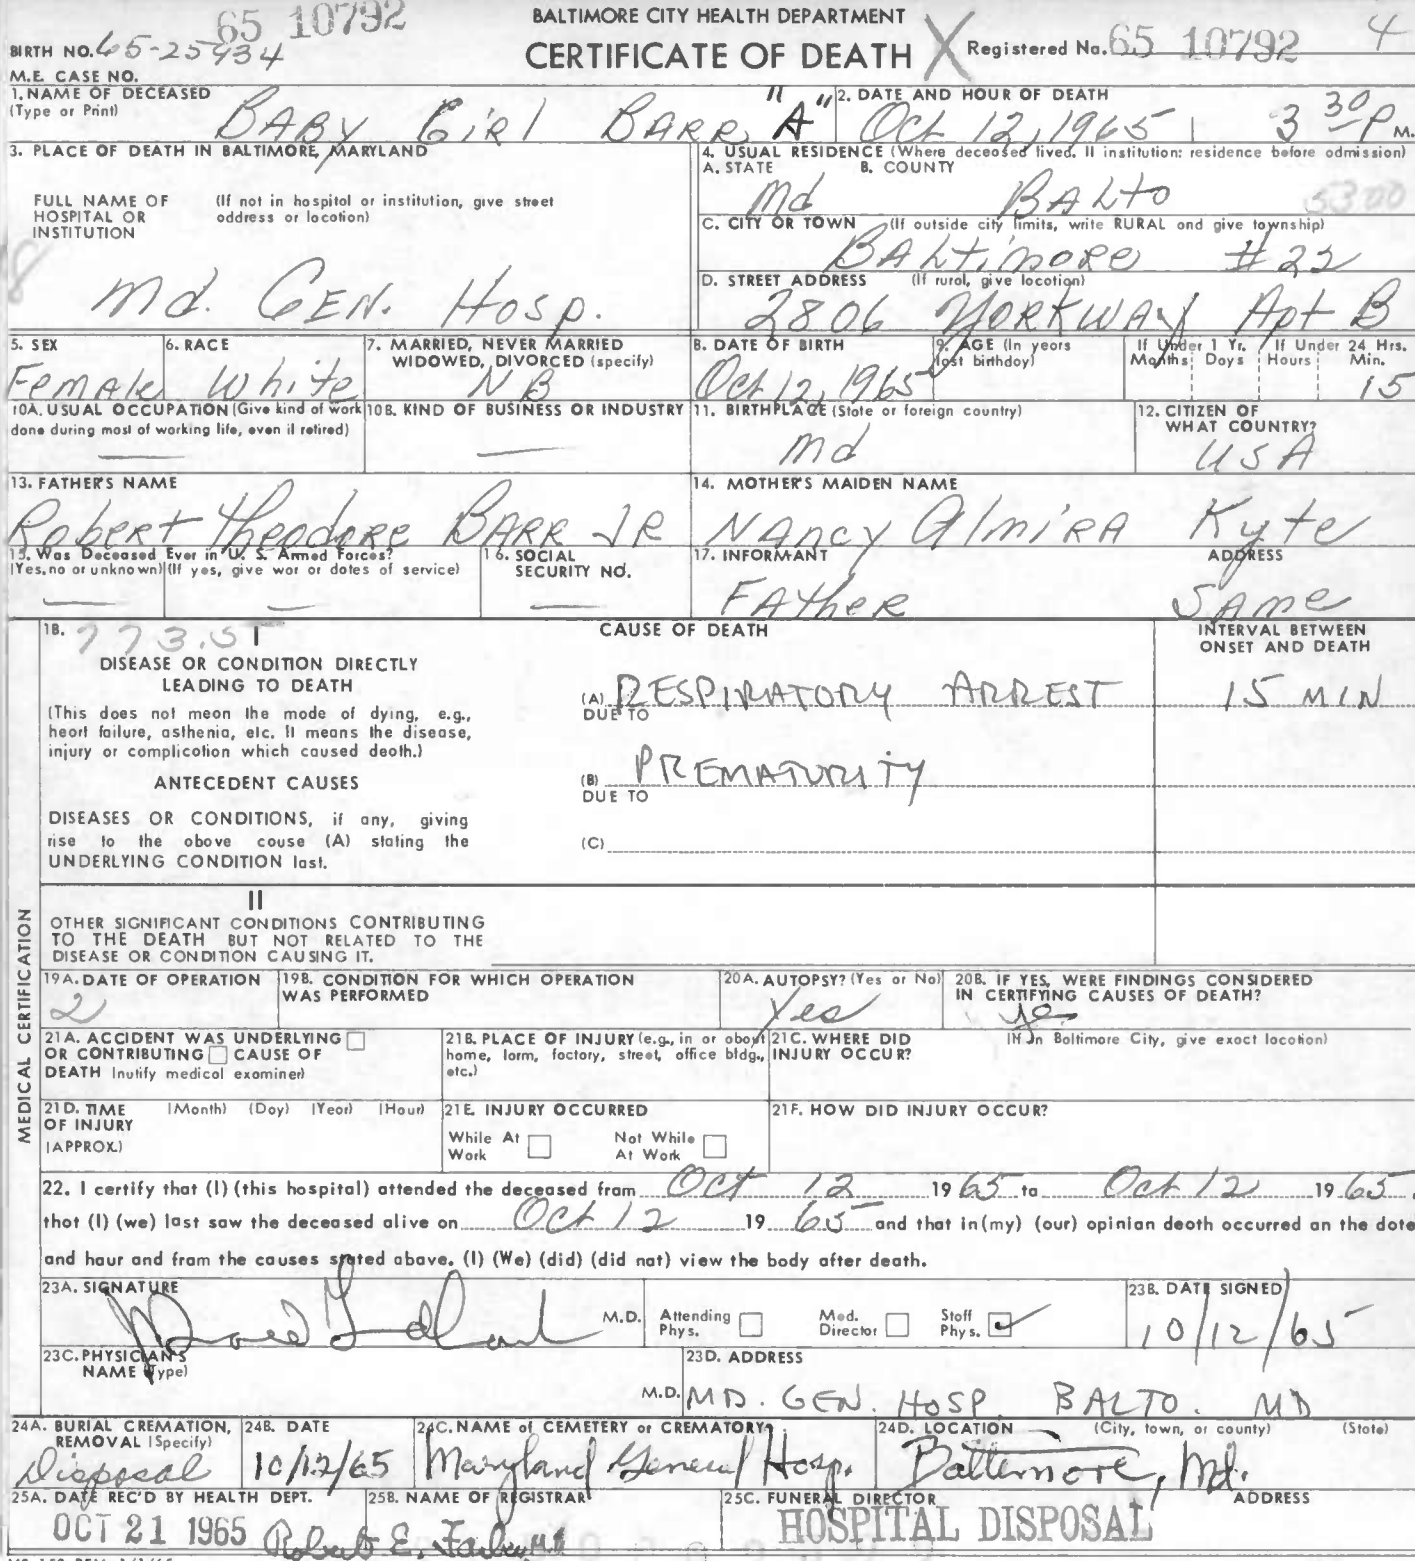 65 10792
BALTIMORE CITY HEALTH DEPARTMENT
BIRTH NO. 65-25934
CERTIFICATE OF DEATH X
Registered No. 65 10792 4
M.E. CASE NO.
1. NAME OF DECEASED (Type or Print)
BABY GIRL BARR "A"
2. DATE AND HOUR OF DEATH
Oct 12, 1965 3 30 P M.
3. PLACE OF DEATH IN BALTIMORE, MARYLAND
FULL NAME OF HOSPITAL OR INSTITUTION
(If not in hospital or institution, give street address or location)
Md. GEN. Hosp.
4. USUAL RESIDENCE (Where deceased lived. If institution: residence before admission)
A. STATE B. COUNTY
Md BALTO 5300
C. CITY OR TOWN (If outside city limits, write RURAL and give township)
BALTIMORE #22
D. STREET ADDRESS (If rural, give location)
2806 YORKWAY Apt B
5. SEX
Female
6. RACE
White
7. MARRIED, NEVER MARRIED WIDOWED, DIVORCED (specify)
NB
8. DATE OF BIRTH
Oct 12, 1965
9. AGE (In years last birthday)
If Under 1 Yr. Months Days
If Under 24 Hrs. Hours Min.
15
10A. USUAL OCCUPATION (Give kind of work done during most of working life, even if retired)
10B. KIND OF BUSINESS OR INDUSTRY
11. BIRTHPLACE (State or foreign country)
Md
12. CITIZEN OF WHAT COUNTRY?
USA
13. FATHER'S NAME
Robert Theodore BARR JR
14. MOTHER'S MAIDEN NAME
NANCY AlmiRA Kyte
15. Was Deceased Ever in U. S. Armed Forces?
(Yes, no or unknown) (If yes, give war or dates of service)
16. SOCIAL SECURITY NO.
17. INFORMANT ADDRESS
FATHER SAME
18. 773.5 I
CAUSE OF DEATH
INTERVAL BETWEEN ONSET AND DEATH
DISEASE OR CONDITION DIRECTLY LEADING TO DEATH
(This does not mean the mode of dying, e.g., heart failure, asthenia, etc. It means the disease, injury or complication which caused death.)
(A) RESPIRATORY ARREST 15 MIN
DUE TO
ANTECEDENT CAUSES
(B) PREMATURITY
DUE TO
DISEASES OR CONDITIONS, if any, giving rise to the above cause (A) stating the UNDERLYING CONDITION last.
(C)
II
OTHER SIGNIFICANT CONDITIONS CONTRIBUTING TO THE DEATH BUT NOT RELATED TO THE DISEASE OR CONDITION CAUSING IT.
MEDICAL CERTIFICATION
19A. DATE OF OPERATION
2
19B. CONDITION FOR WHICH OPERATION WAS PERFORMED
20A. AUTOPSY? (Yes or No)
Yes
20B. IF YES, WERE FINDINGS CONSIDERED IN CERTIFYING CAUSES OF DEATH?
yes
21A. ACCIDENT WAS UNDERLYING OR CONTRIBUTING CAUSE OF DEATH (notify medical examiner)
21B. PLACE OF INJURY (e.g., in or about home, farm, factory, street, office bldg., etc.)
21C. WHERE DID INJURY OCCUR? (If in Baltimore City, give exact location)
21D. TIME OF INJURY (APPROX.) (Month) (Day) (Year) (Hour)
21E. INJURY OCCURRED
While At Work Not While At Work
21F. HOW DID INJURY OCCUR?
22. I certify that (I) (this hospital) attended the deceased from Oct 12 19 65 to Oct 12 19 65,
that (I) (we) last saw the deceased alive on Oct 12 19 65 and that in (my) (our) opinion death occurred on the date
and hour and from the causes stated above. (I) (We) (did) (did not) view the body after death.
23A. SIGNATURE
M.D. Attending Phys. Med. Director Staff Phys.
23B. DATE SIGNED
10/12/65
23C. PHYSICIAN'S NAME (Type)
M.D.
23D. ADDRESS
MD. GEN. HOSP. BALTO. MD
24A. BURIAL CREMATION, REMOVAL (Specify)
Disposal
24B. DATE
10/12/65
24C. NAME of CEMETERY or CREMATORY
Maryland General Hosp.
24D. LOCATION (City, town, or county) (State)
Baltimore, Md.
25A. DATE REC'D BY HEALTH DEPT.
OCT 21 1965
25B. NAME OF REGISTRAR
Robert E. Farber M.D.
25C. FUNERAL DIRECTOR ADDRESS
HOSPITAL DISPOSAL